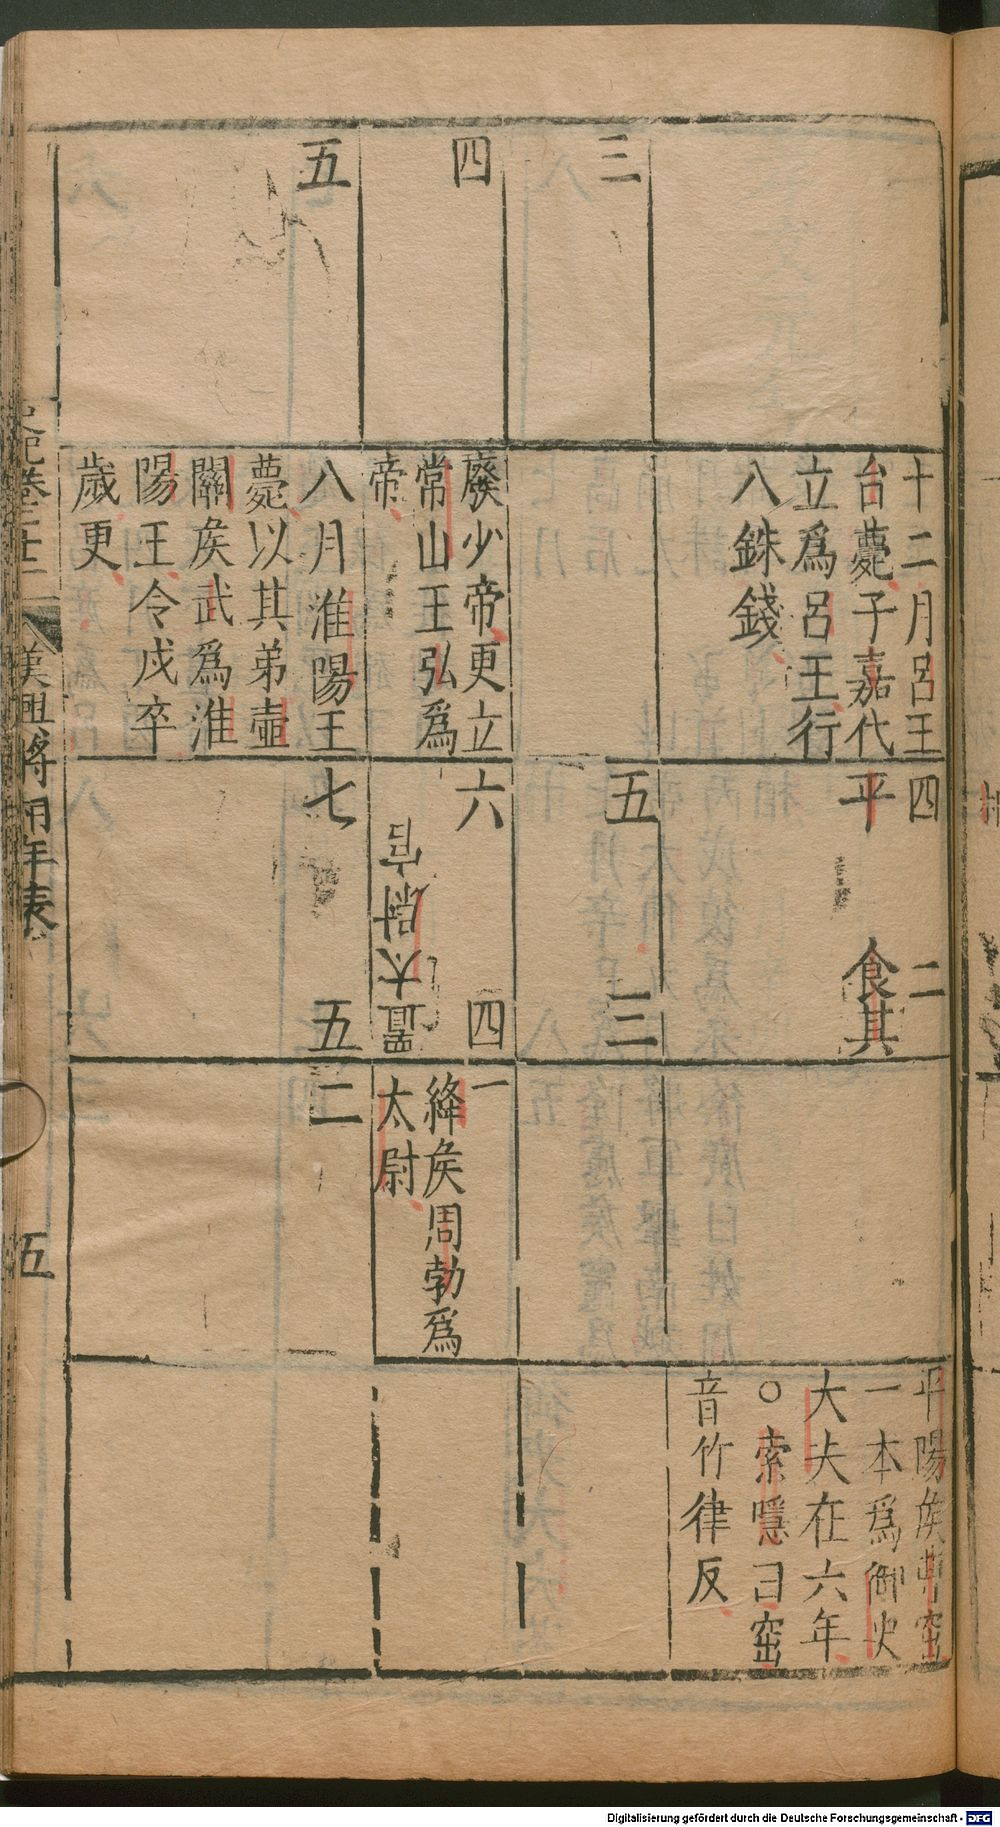 十二月呂王
台薨子嘉代
立爲呂王行
八銖錢
四　二
平　食其
平陽侯曹窋
一本爲御史
大夫在六年
○索隱曰窋
音竹律反
三
五　三
四
廢少帝更立
常山王弘爲
帝
六　四
置太尉官
一
絳侯周勃爲
太尉
五
八月淮陽王
薨以其弟壺
關侯武爲淮
陽王令戍卒
歲更
七　五
二
漢興將相年表
五
Digitalisierung gefördert durch die Deutsche Forschungsgemeinschaft - DFG